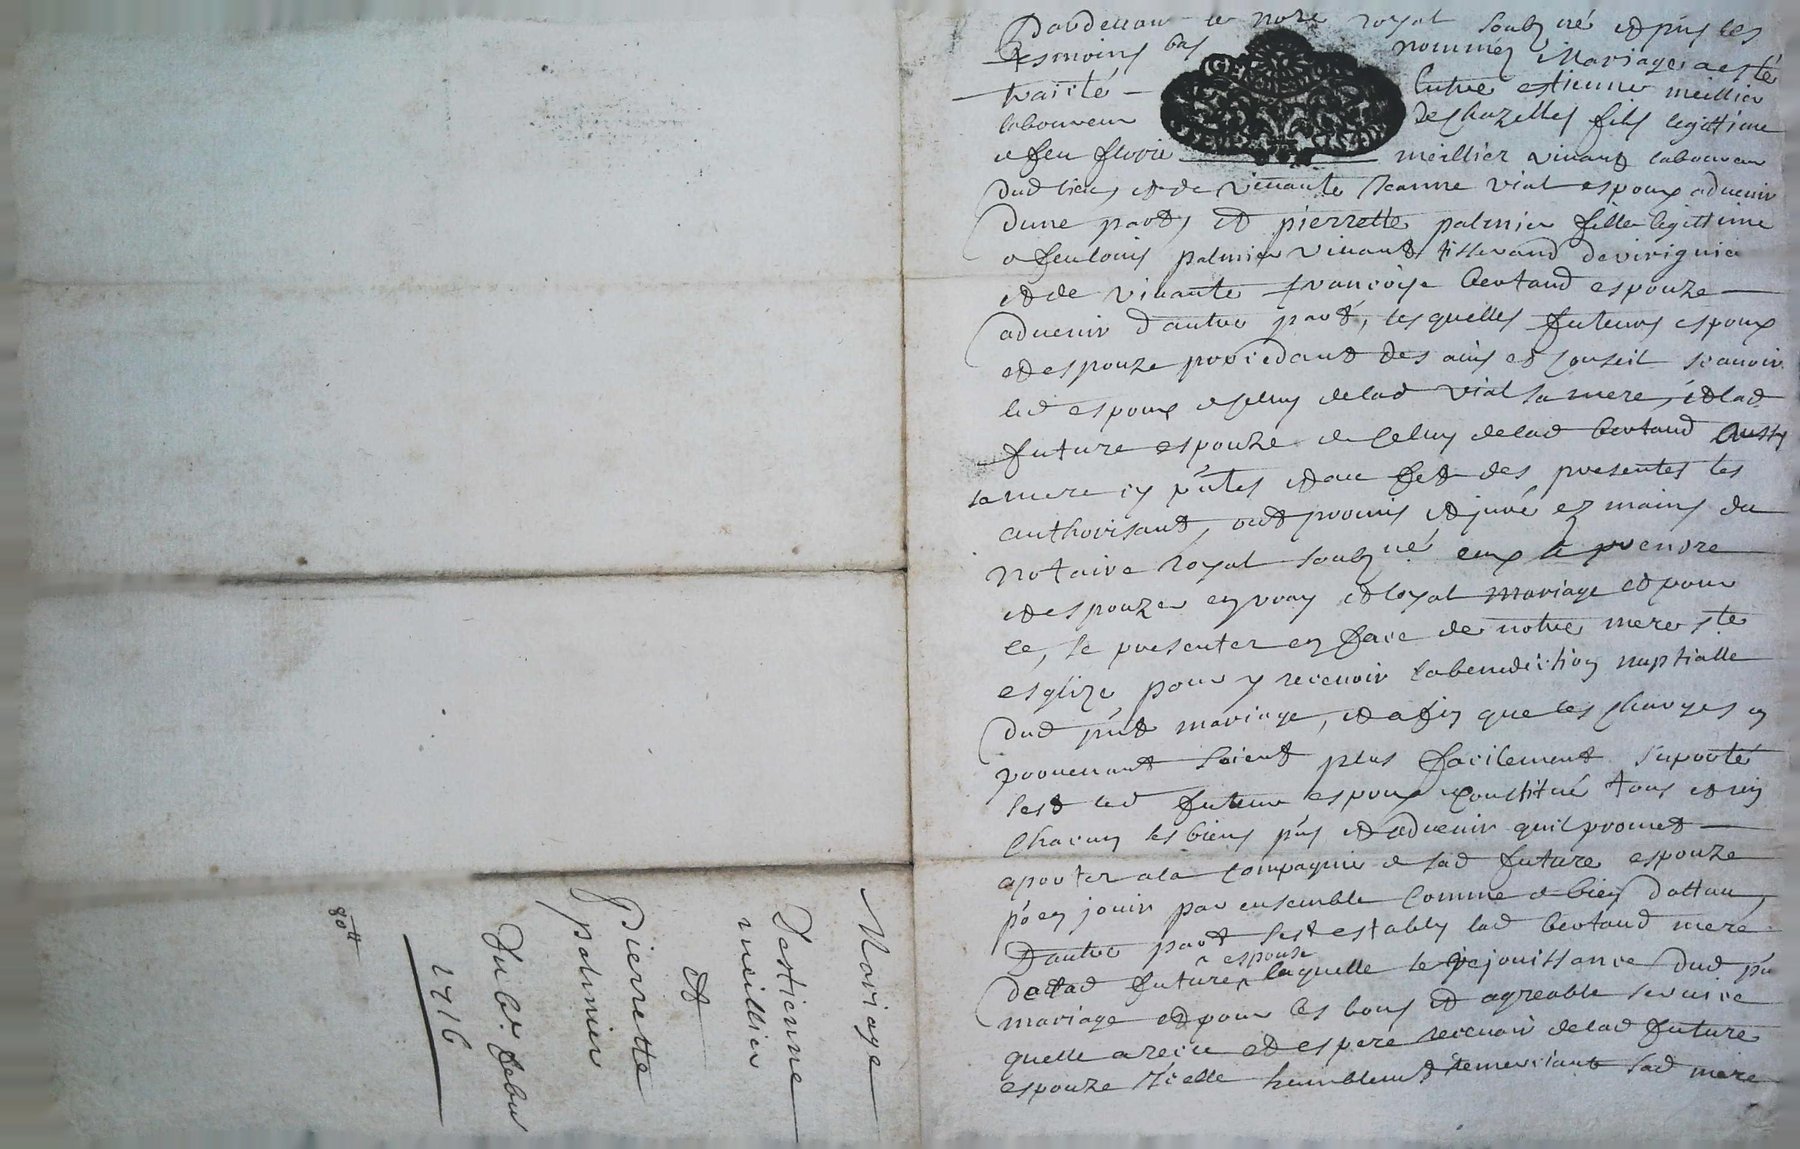 Pardevant le nore royal soubz né et pñs les
tesmoins bas nommés Mariage a esté
traicté — Entre estienne meillier
laboureur de Chazelles fils legittime
de feu florie meillier vivant laboureur
dud lieu, et de vivante Jeanne vial espoux advenir
dune part, et pierrette palmier fille legittime
de feu louis palmier vivant tisserand de virignieu
et de vivante françoise bertaud espouze —
advenir d'autre part, lesquelles futeurs espoux
et espouze procedant des avis et conseil scavoir
led espoux de celuy de lad vial sa mere, et lad
future espouze de celuy de lad bertaud aussy
sa mere icy pñtes et au fet des presentes les
authorisant, ont promis et juré ez mains du
notaire royal soubz né eux se prendre
et espouzer en vray et loyal mariage et pour
ce, se presenter en face de notre mere ste
esglize pour y recevoir la benediction nuptialle
dud pñt mariage, et afin que les charges en
provenant soient plus facilement suporté
sest led futeur espoux constitué tous et un
chacun les biens pñs et advenir quil promet —
aporter a la compagnie de sad future espouze
pr en jouir par ensemble comme de bien dottaux
D'autre part sest establi lad bertaud mere
de lad future espouse laquelle se rejouissance dud pñt
mariage et pour les bons et agreable service
quelle a receu et espere recevoir de lad future
espouze icelle humblemt remerciant sad mere
Mariage
D'estienne
meillier
et
Pierrette
palmier
Du 6r. febvr
1716
80tt